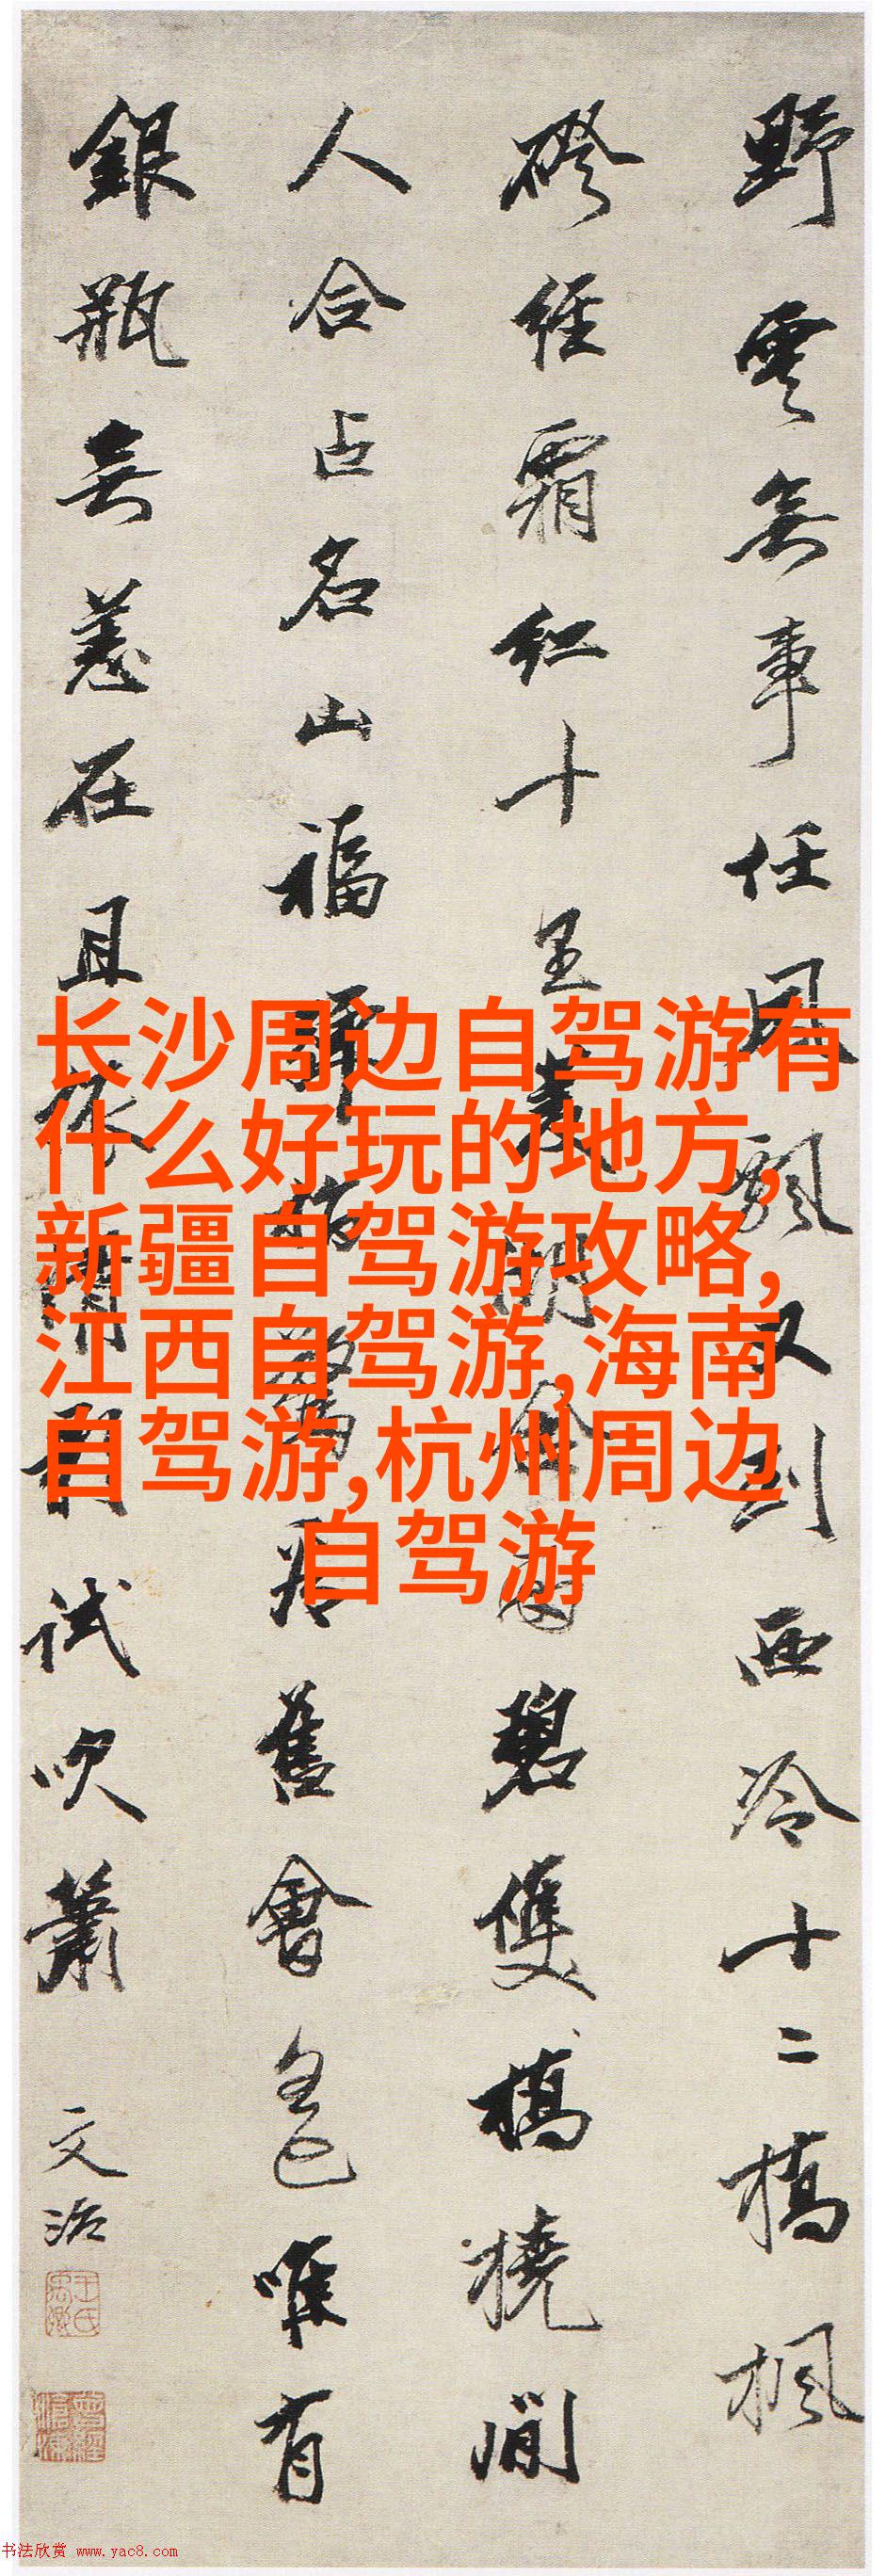 野雲無事任風飄又到西冷十二橋楓
磴經霜紅十里菱湖含雨碧雙橋橈間
人合占名山福舊會已唯有
銀瓶無恙在且依清影試吹簫
文治
王氏禹卿
长沙周边自驾游有
什么好玩的地方,
新疆自驾游攻略,
江西自驾游,海南
自驾游,杭州周边
自驾游
书法欣赏 www.yac8.com